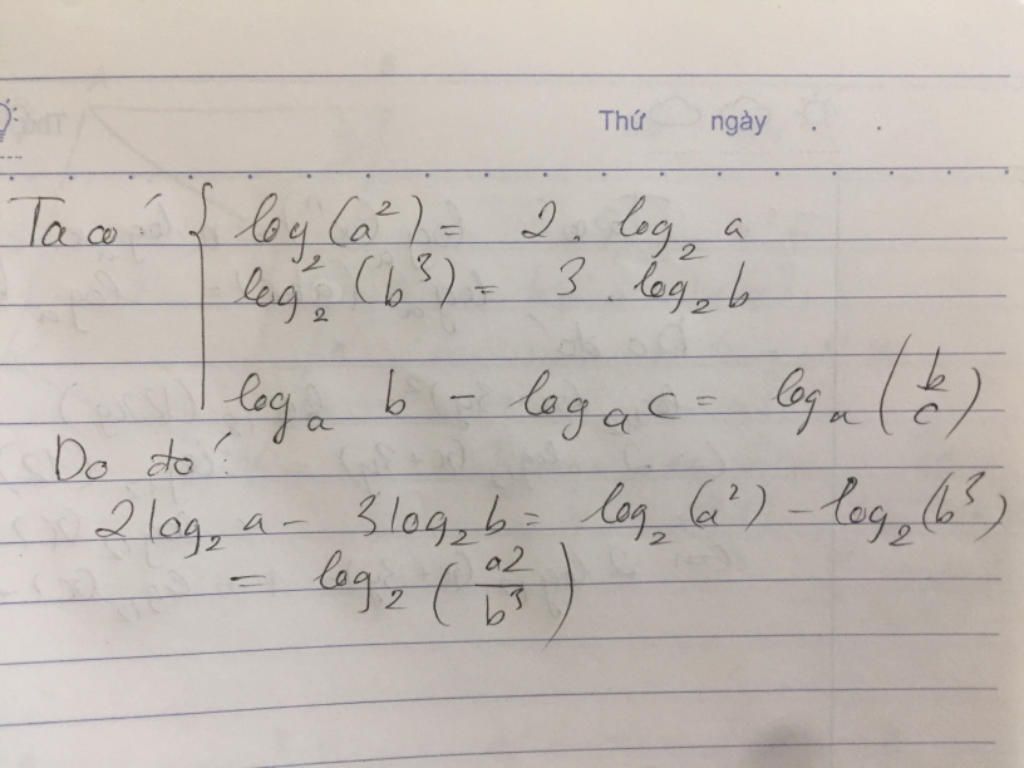 Thứ ngày . .
Ta có: { log₂(a²) = 2 . log₂ a
log₂ (b³) = 3 . log₂b
logₐ b - logₐ c = logₐ (b/c)
Do đó:
2log₂ a - 3log₂ b = log₂ (a²) - log₂(b³)
= log₂ (a2/b³)